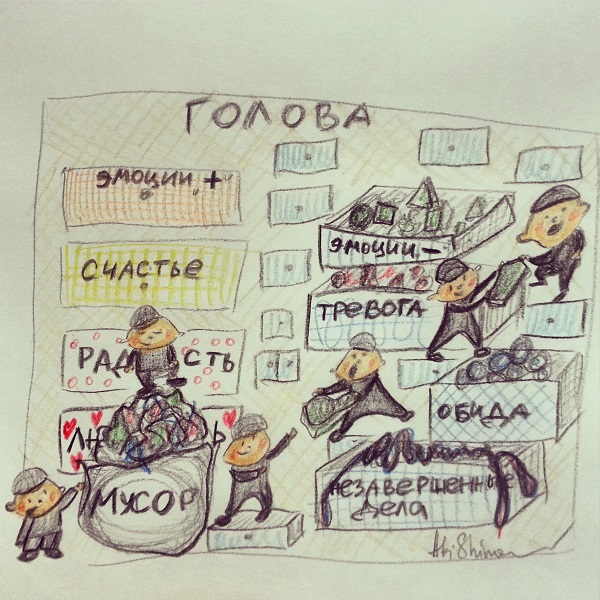 ГОЛОВА
ЭМОЦИИ +
СЧАСТЬЕ
РАД СТЬ
МУСОР
ЭМОЦИИ –
ТРЕВОГА
ОБИДА
НЕЗАВЕРШЕННЫЕ
ДЕЛА